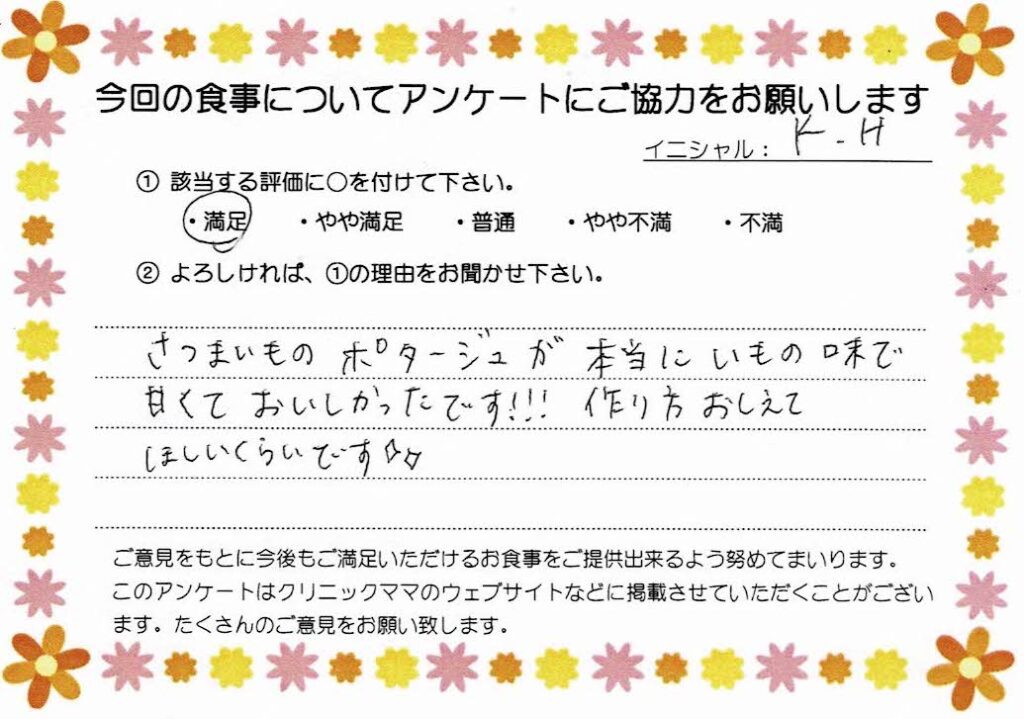 今回の食事についてアンケートにご協力をお願いします
イニシャル： K.H
① 該当する評価に○を付けて下さい。
・満足 ・やや満足 ・普通 ・やや不満 ・不満
② よろしければ、①の理由をお聞かせ下さい。
さつまいもの ポタージュが 本当に いもの 味で
甘くて おいしかったです!!! 作り方 おしえて
ほしいくらいです☆☆
ご意見をもとに今後もご満足いただけるお食事をご提供出来るよう努めてまいります。
このアンケートはクリニックママのウェブサイトなどに掲載させていただくことがござい
ます。たくさんのご意見をお願い致します。